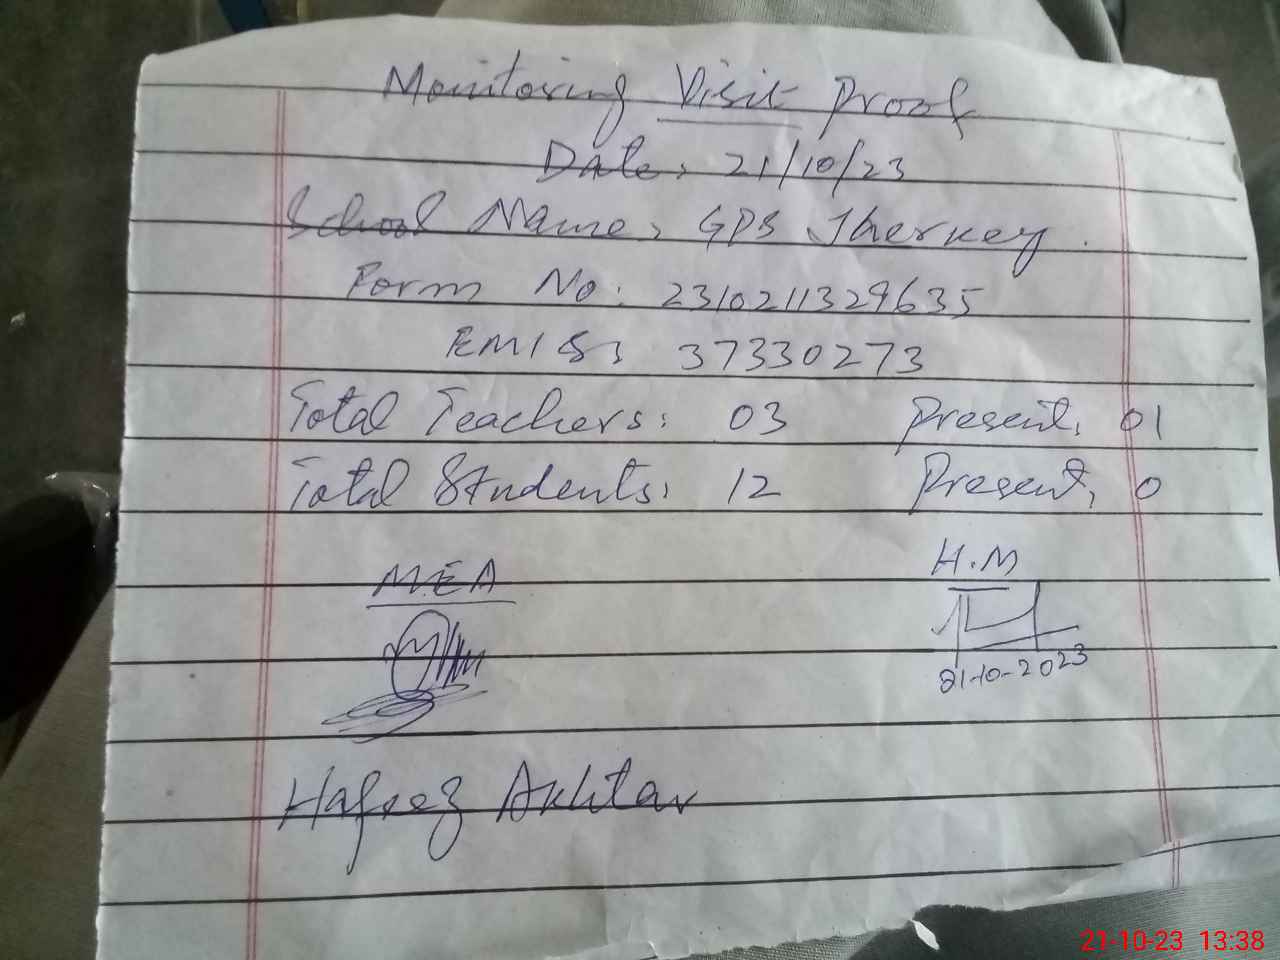 Monitoring Visit Proof
Date: 21/10/23
School Name: GPS Jherkey.
Form No: 2310211329635
EMIS: 37330273
Total Teachers: 03 Present: 01
Total Students: 12 Present: 0
M.E.A H.M
21-10-2023
Hafeez Akhtar
21-10-23 13:38